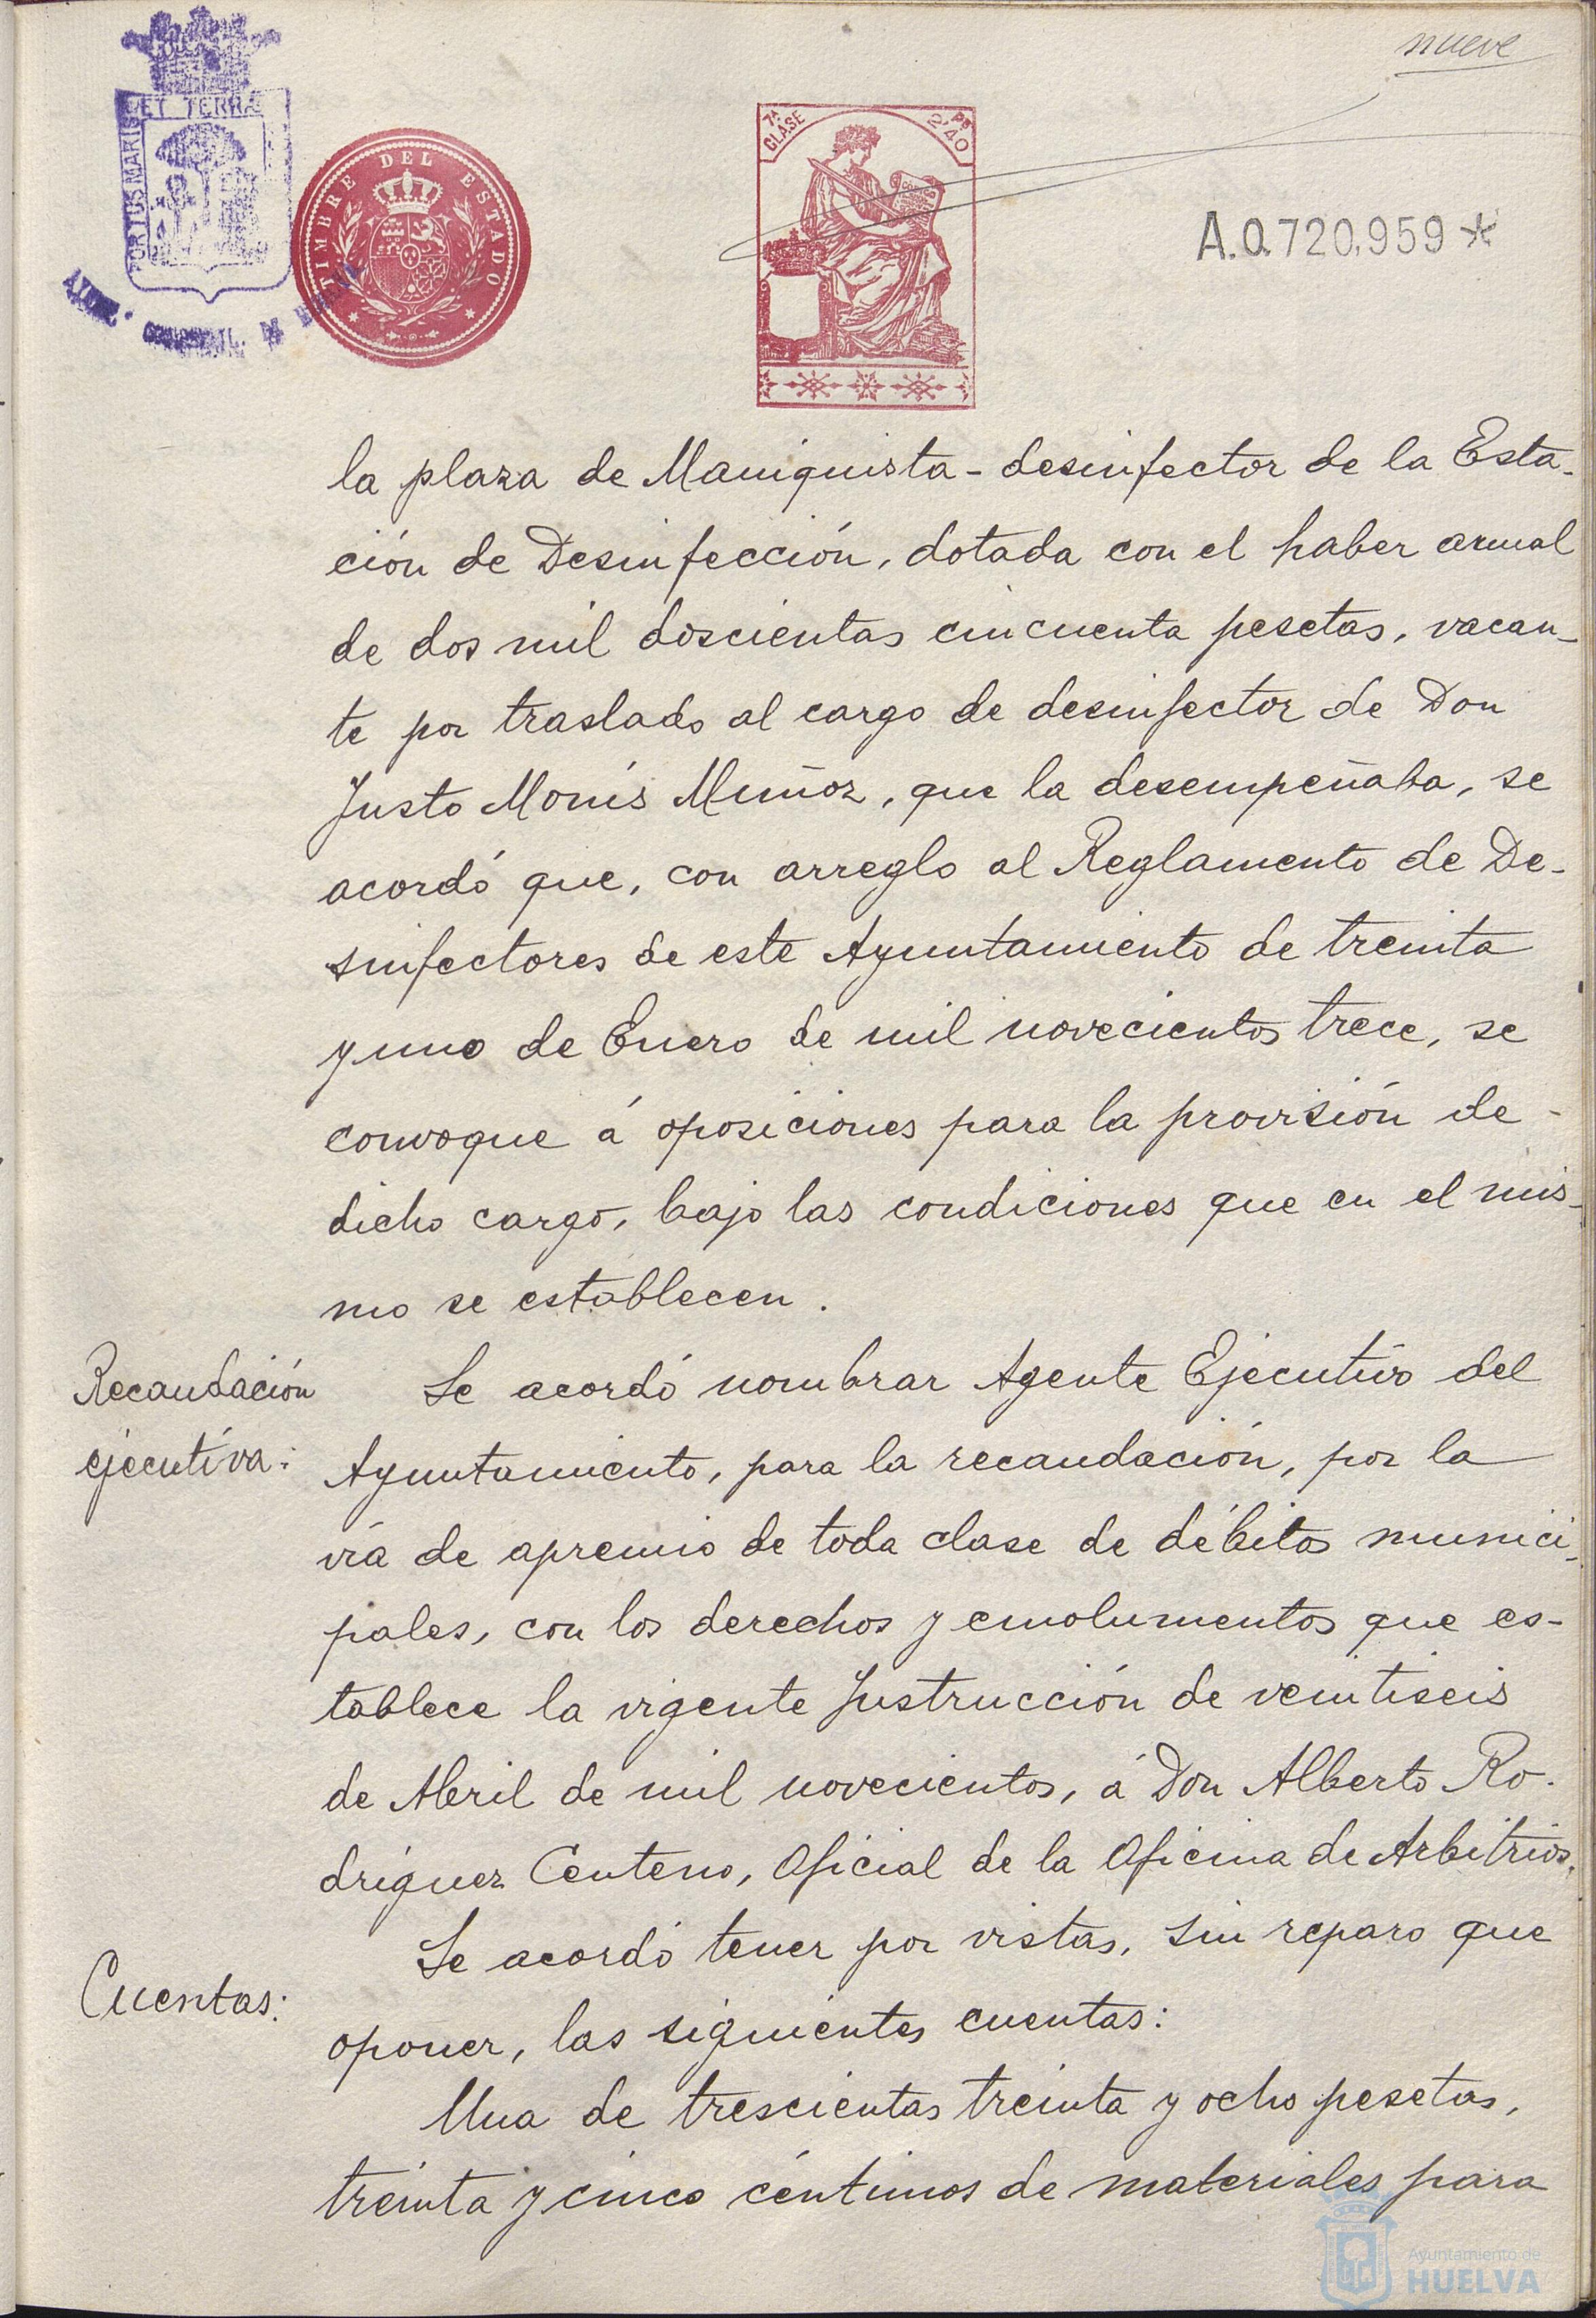 nueve
ET TERRÆ
PORTUS MARIS
TIMBRE DEL ESTADO
7ª CLASE
PS 2'40
A.0.720,959*
la plaza de Maniquista-desinfector de la Esta-
ción de Desinfección, dotada con el haber anual
de dos mil doscientas cincuenta pesetas, vacan-
te por traslado al cargo de desinfector de Don
Justo Monís Muñoz, que la desempeñaba, se
acordó que, con arreglo al Reglamento de De-
sinfectores de este Ayuntamiento de treinta
y uno de Enero de mil novecientos trece, se
convoque á oposiciones para la provisión de-
dicho cargo, bajo las condiciones que en el mis-
mo se establecen.
Recaudación
ejecutiva:
Se acordó nombrar Agente Ejecutivo del
Ayuntamiento, para la recaudación, por la
vía de apremio de toda clase de débitos munici-
pales, con los derechos y emolumentos que es-
tablece la vigente Instrucción de veintiseis
de Abril de mil novecientos, á Don Alberto Ro-
dríguez Centeno, Oficial de la Oficina de Arbitrios.
Cuentas:
Se acordó tener por vistas, sin reparo que
oponer, las siguientes cuentas:
Una de trescientas treinta y ocho pesetas,
treinta y cinco céntimos de materiales para
Ayuntamiento de
HUELVA